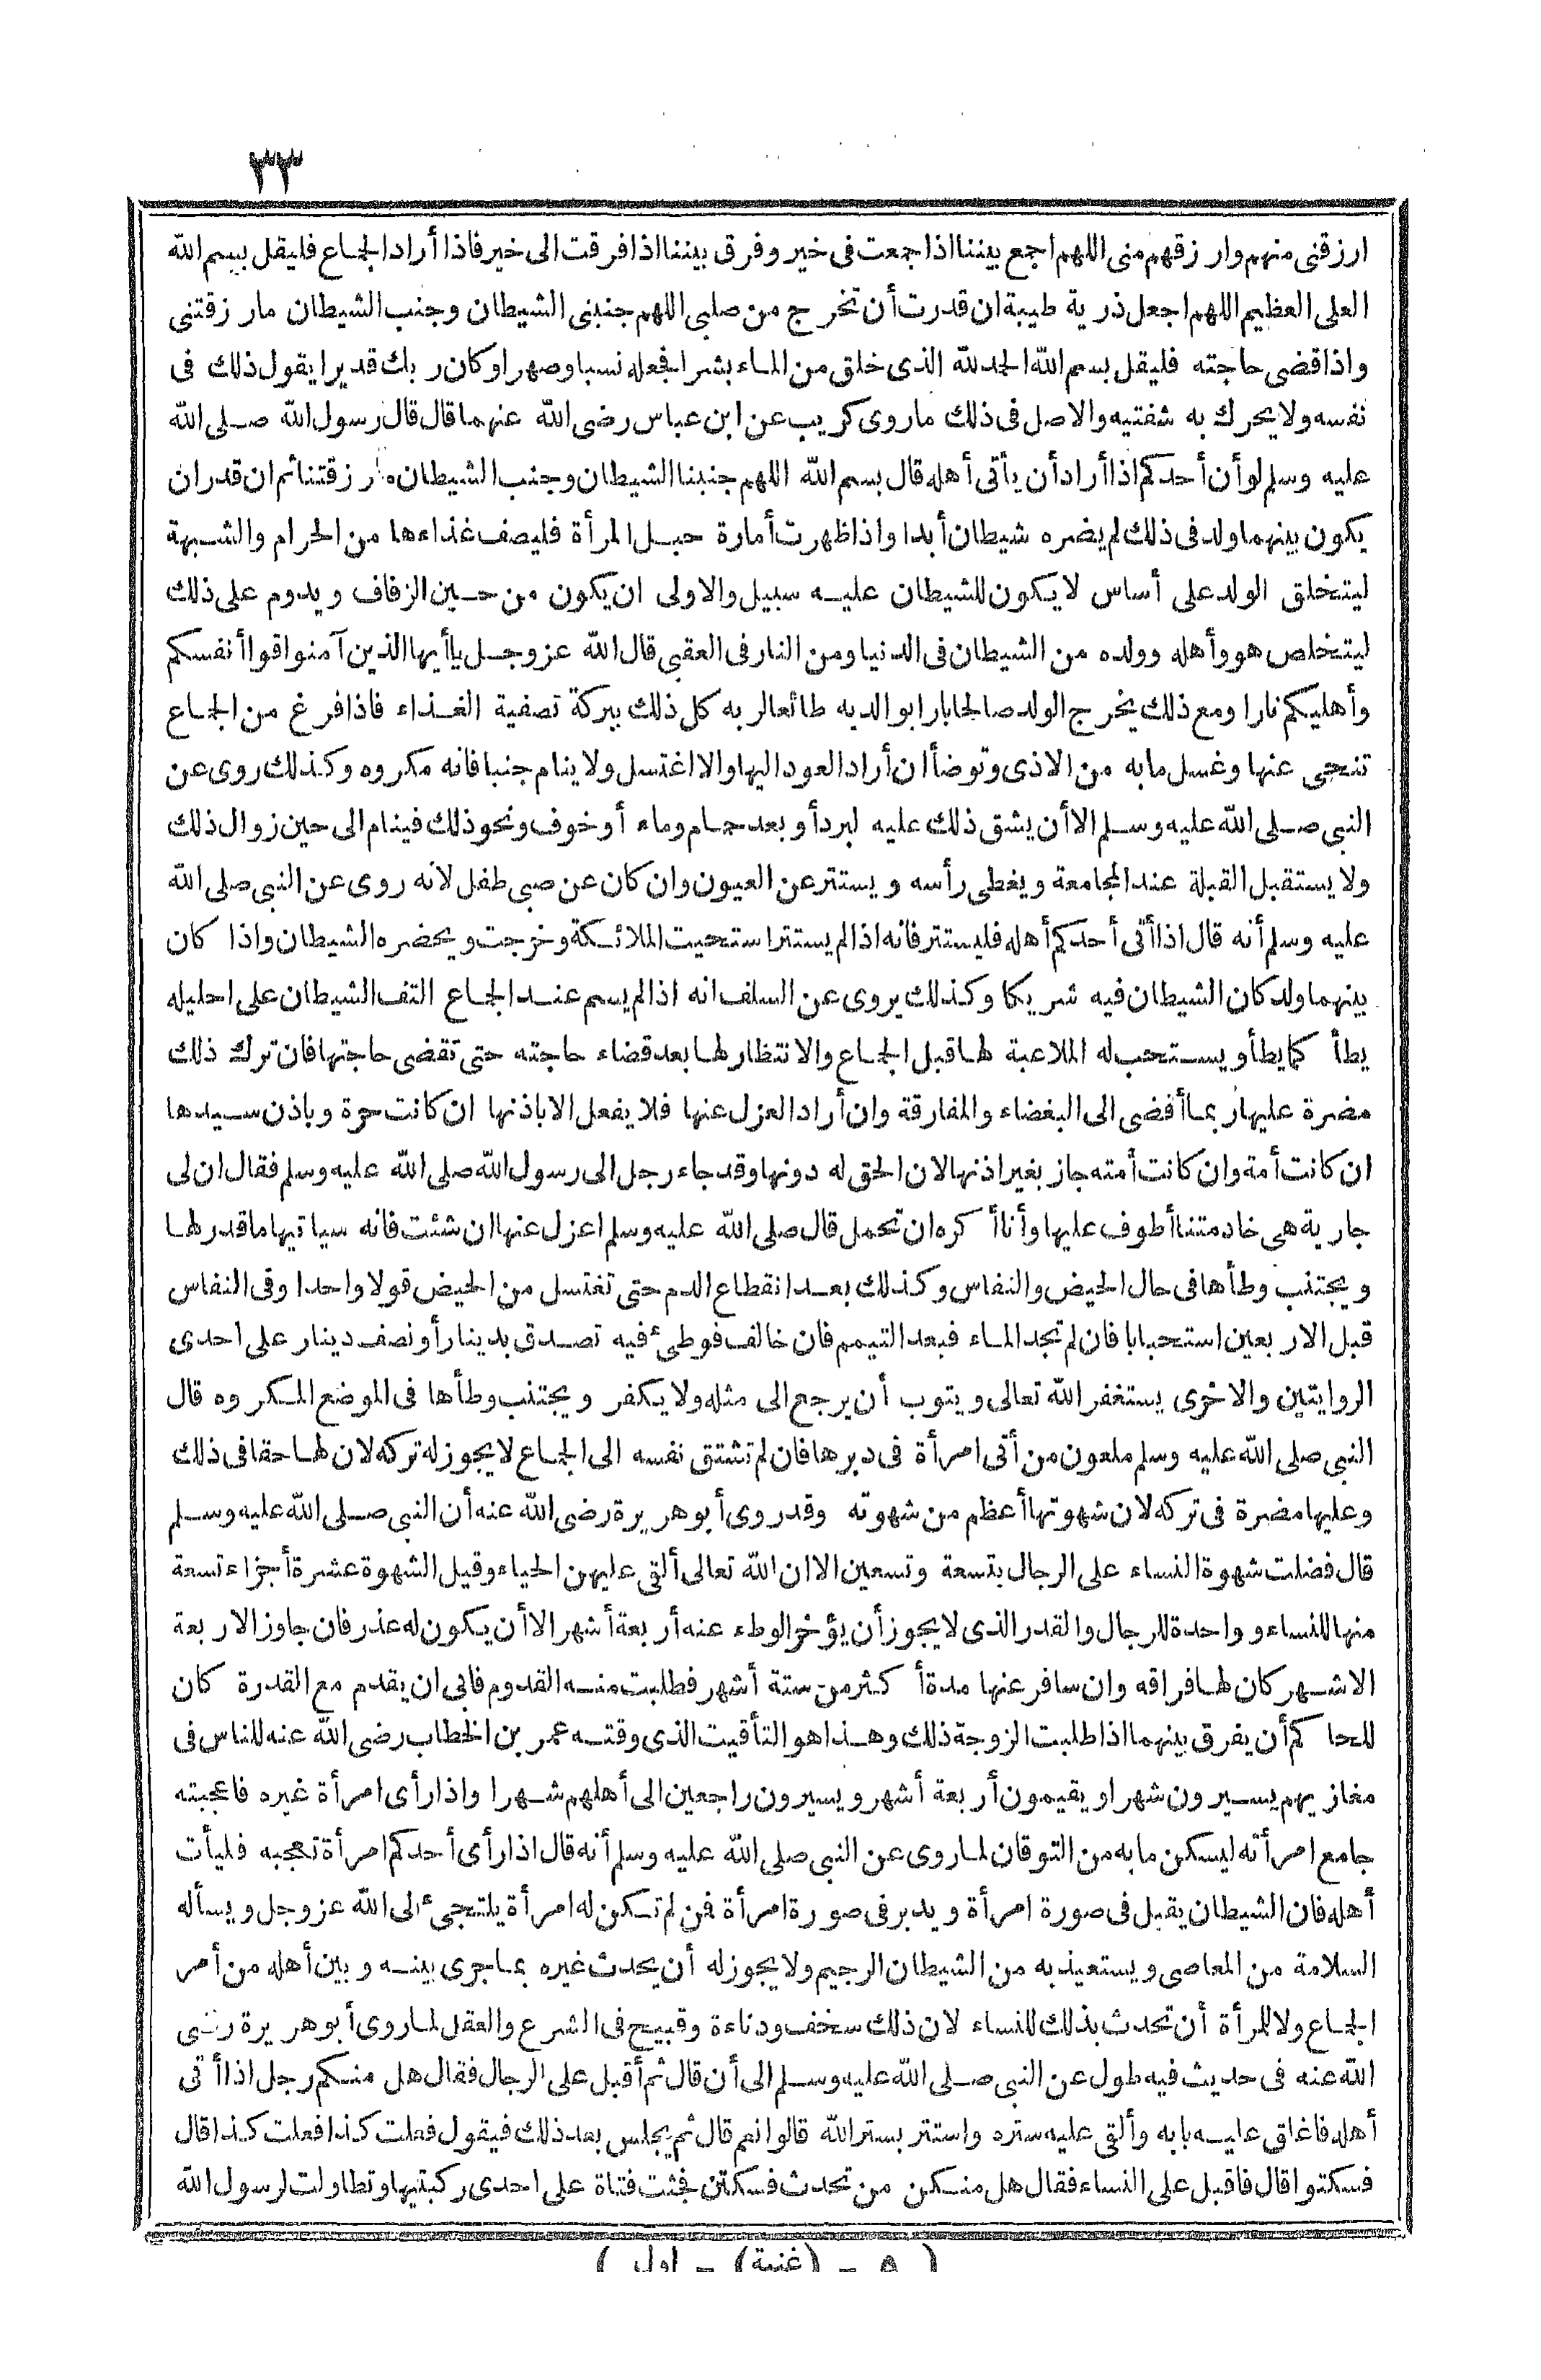 ٣٣
ارزقنى منهم وارزقهم منى اللهم اجمع بيننا اذا جمعت فى خير وفرق بيننا اذا فرقت الى خير فاذا أراد الجماع فليقل بسم الله
العلى العظيم اللهم اجعل ذرية طيبة ان قدرت أن تخرج من صلبى اللهم جنبنى الشيطان وجنب الشيطان مارزقتنى
واذا قضى حاجته فليقل بسم الله الحمد لله الذى خلق من الماء بشرا فجعله نسبا وصهرا وكان ربك قديرا يقول ذلك فى
نفسه ولا يحرك به شفتيه والاصل فى ذلك ماروى كريب عن ابن عباس رضى الله عنهما قال قال رسول الله صلى الله
عليه وسلم لو أن أحدكم اذا أراد أن يأتى أهله قال بسم الله اللهم جنبنا الشيطان وجنب الشيطان مارزقتنا ثم ان قدر ان
يكون بينهما ولد فى ذلك لم يضره شيطان أبدا واذا ظهرت أمارة حبل المرأة فليصف غذاءها من الحرام والشبهة
ليتخلق الولد على أساس لا يكون للشيطان عليه سبيل والاولى ان يكون من حين الزفاف ويدوم على ذلك
ليتخلص هو وأهله وولده من الشيطان فى الدنيا ومن النار فى العقبى قال الله عز وجل ياأيها الذين آمنوا قوا أنفسكم
وأهليكم نارا ومع ذلك يخرج الولد صالحا بارا بوالديه طائعا لربه كل ذلك ببركة تصفية الغذاء فاذا فرغ من الجماع
تنحى عنها وغسل مابه من الاذى وتوضأ ان أراد العود اليها والا اغتسل ولا ينام جنبا فانه مكروه وكذلك روى عن
النبى صلى الله عليه وسلم الا أن يشق ذلك عليه لبرد أو بعد حمام وماء أو خوف ونحو ذلك فينام الى حين زوال ذلك
ولا يستقبل القبلة عند المجامعة ويغطى رأسه ويستتر عن العيون وان كان عن صبى طفل لانه روى عن النبى صلى الله
عليه وسلم أنه قال اذا أتى أحدكم أهله فليستتر فانه اذا لم يستتر استحيت الملائكة وخرجت ويحضره الشيطان واذا كان
بينهما ولد كان الشيطان فيه شريكا وكذلك يروى عن السلف انه اذا لم يسم عند الجماع التف الشيطان على احليله
يطأ كما يطأ ويستحب له الملاعبة لها قبل الجماع والانتظار لها بعد قضاء حاجته حتى تقضى حاجتها فان ترك ذلك
مضرة عليها ربما أفضى الى البغضاء والمفارقة وان أراد العزل عنها فلا يفعل الا باذنها ان كانت حرة وباذن سيدها
ان كانت أمة وان كانت أمته جاز بغير اذنها لان الحق له دونها وقد جاء رجل الى رسول الله صلى الله عليه وسلم فقال ان لى
جارية هى خادمتنا أطوف عليها وأنا أكره ان تحمل قال صلى الله عليه وسلم اعزل عنها ان شئت فانه سيأتيها ما قدر لها
ويجتنب وطأها فى حال الحيض والنفاس وكذلك بعد انقطاع الدم حتى تغتسل من الحيض قولا واحدا وفى النفاس
قبل الاربعين استحبابا فان لم تجد الماء فبعد التيمم فان خالف فوطئ فيه تصدق بدينار أو نصف دينار على احدى
الروايتين والاخرى يستغفر الله تعالى ويتوب أن يرجع الى مثله ولا يكفر ويجتنب وطأها فى الموضع المكروه قال
النبى صلى الله عليه وسلم ملعون من أتى امرأة فى دبرها فان لم تشتق نفسه الى الجماع لا يجوز له تركه لان لها حقا فى ذلك
وعليها مضرة فى تركه لان شهوتها أعظم من شهوته وقد روى أبو هريرة رضى الله عنه أن النبى صلى الله عليه وسلم
قال فضلت شهوة النساء على الرجال بتسعة وتسعين الا ان الله تعالى ألقى عليهن الحياء وقيل الشهوة عشرة أجزاء تسعة
منها للنساء وواحدة للرجال والقدر الذى لا يجوز أن يؤخر الوطء عنه أربعة أشهر الا أن يكون له عذر فان جاوز الاربعة
الاشهر كان لها فراقه وان سافر عنها مدة أكثر من ستة أشهر فطلبت منه القدوم فابى ان يقدم مع القدرة كان
للحاكم أن يفرق بينهما اذا طلبت الزوجة ذلك وهذا هو التأقيت الذى وقته عمر بن الخطاب رضى الله عنه للناس فى
مغازيهم يسيرون شهرا ويقيمون أربعة أشهر ويسيرون راجعين الى أهلهم شهرا واذا رأى امرأة غيره فاعجبته
جامع امرأته ليسكن مابه من التوقان لما روى عن النبى صلى الله عليه وسلم أنه قال اذا رأى أحدكم امرأة تعجبه فليأت
أهله فان الشيطان يقبل فى صورة امرأة ويدبر فى صورة امرأة فمن لم تكن له امرأة يلتجئ الى الله عز وجل ويسأله
السلامة من المعاصى ويستعيذ به من الشيطان الرجيم ولا يجوز له أن يحدث غيره بما جرى بينه وبين أهله من أمر
الجماع ولا للمرأة أن تحدث بذلك للنساء لان ذلك سخف ودناءة وقبيح فى الشرع والعقل لما روى أبو هريرة رضى
الله عنه فى حديث فيه طول عن النبى صلى الله عليه وسلم الى أن قال ثم أقبل على الرجال فقال هل منكم رجل اذا أتى
أهله فاغلق عليه بابه وألقى عليه ستره واستتر بستر الله قالوا نعم قال ثم يجلس بعد ذلك فيقول فعلت كذا فعلت كذا قال
فسكتوا قال فاقبل على النساء فقال هل منكن من تحدث فسكتن فجثت فتاة على احدى ركبتيها وتطاولت لرسول الله
( ٥ - (غنية) - اول )